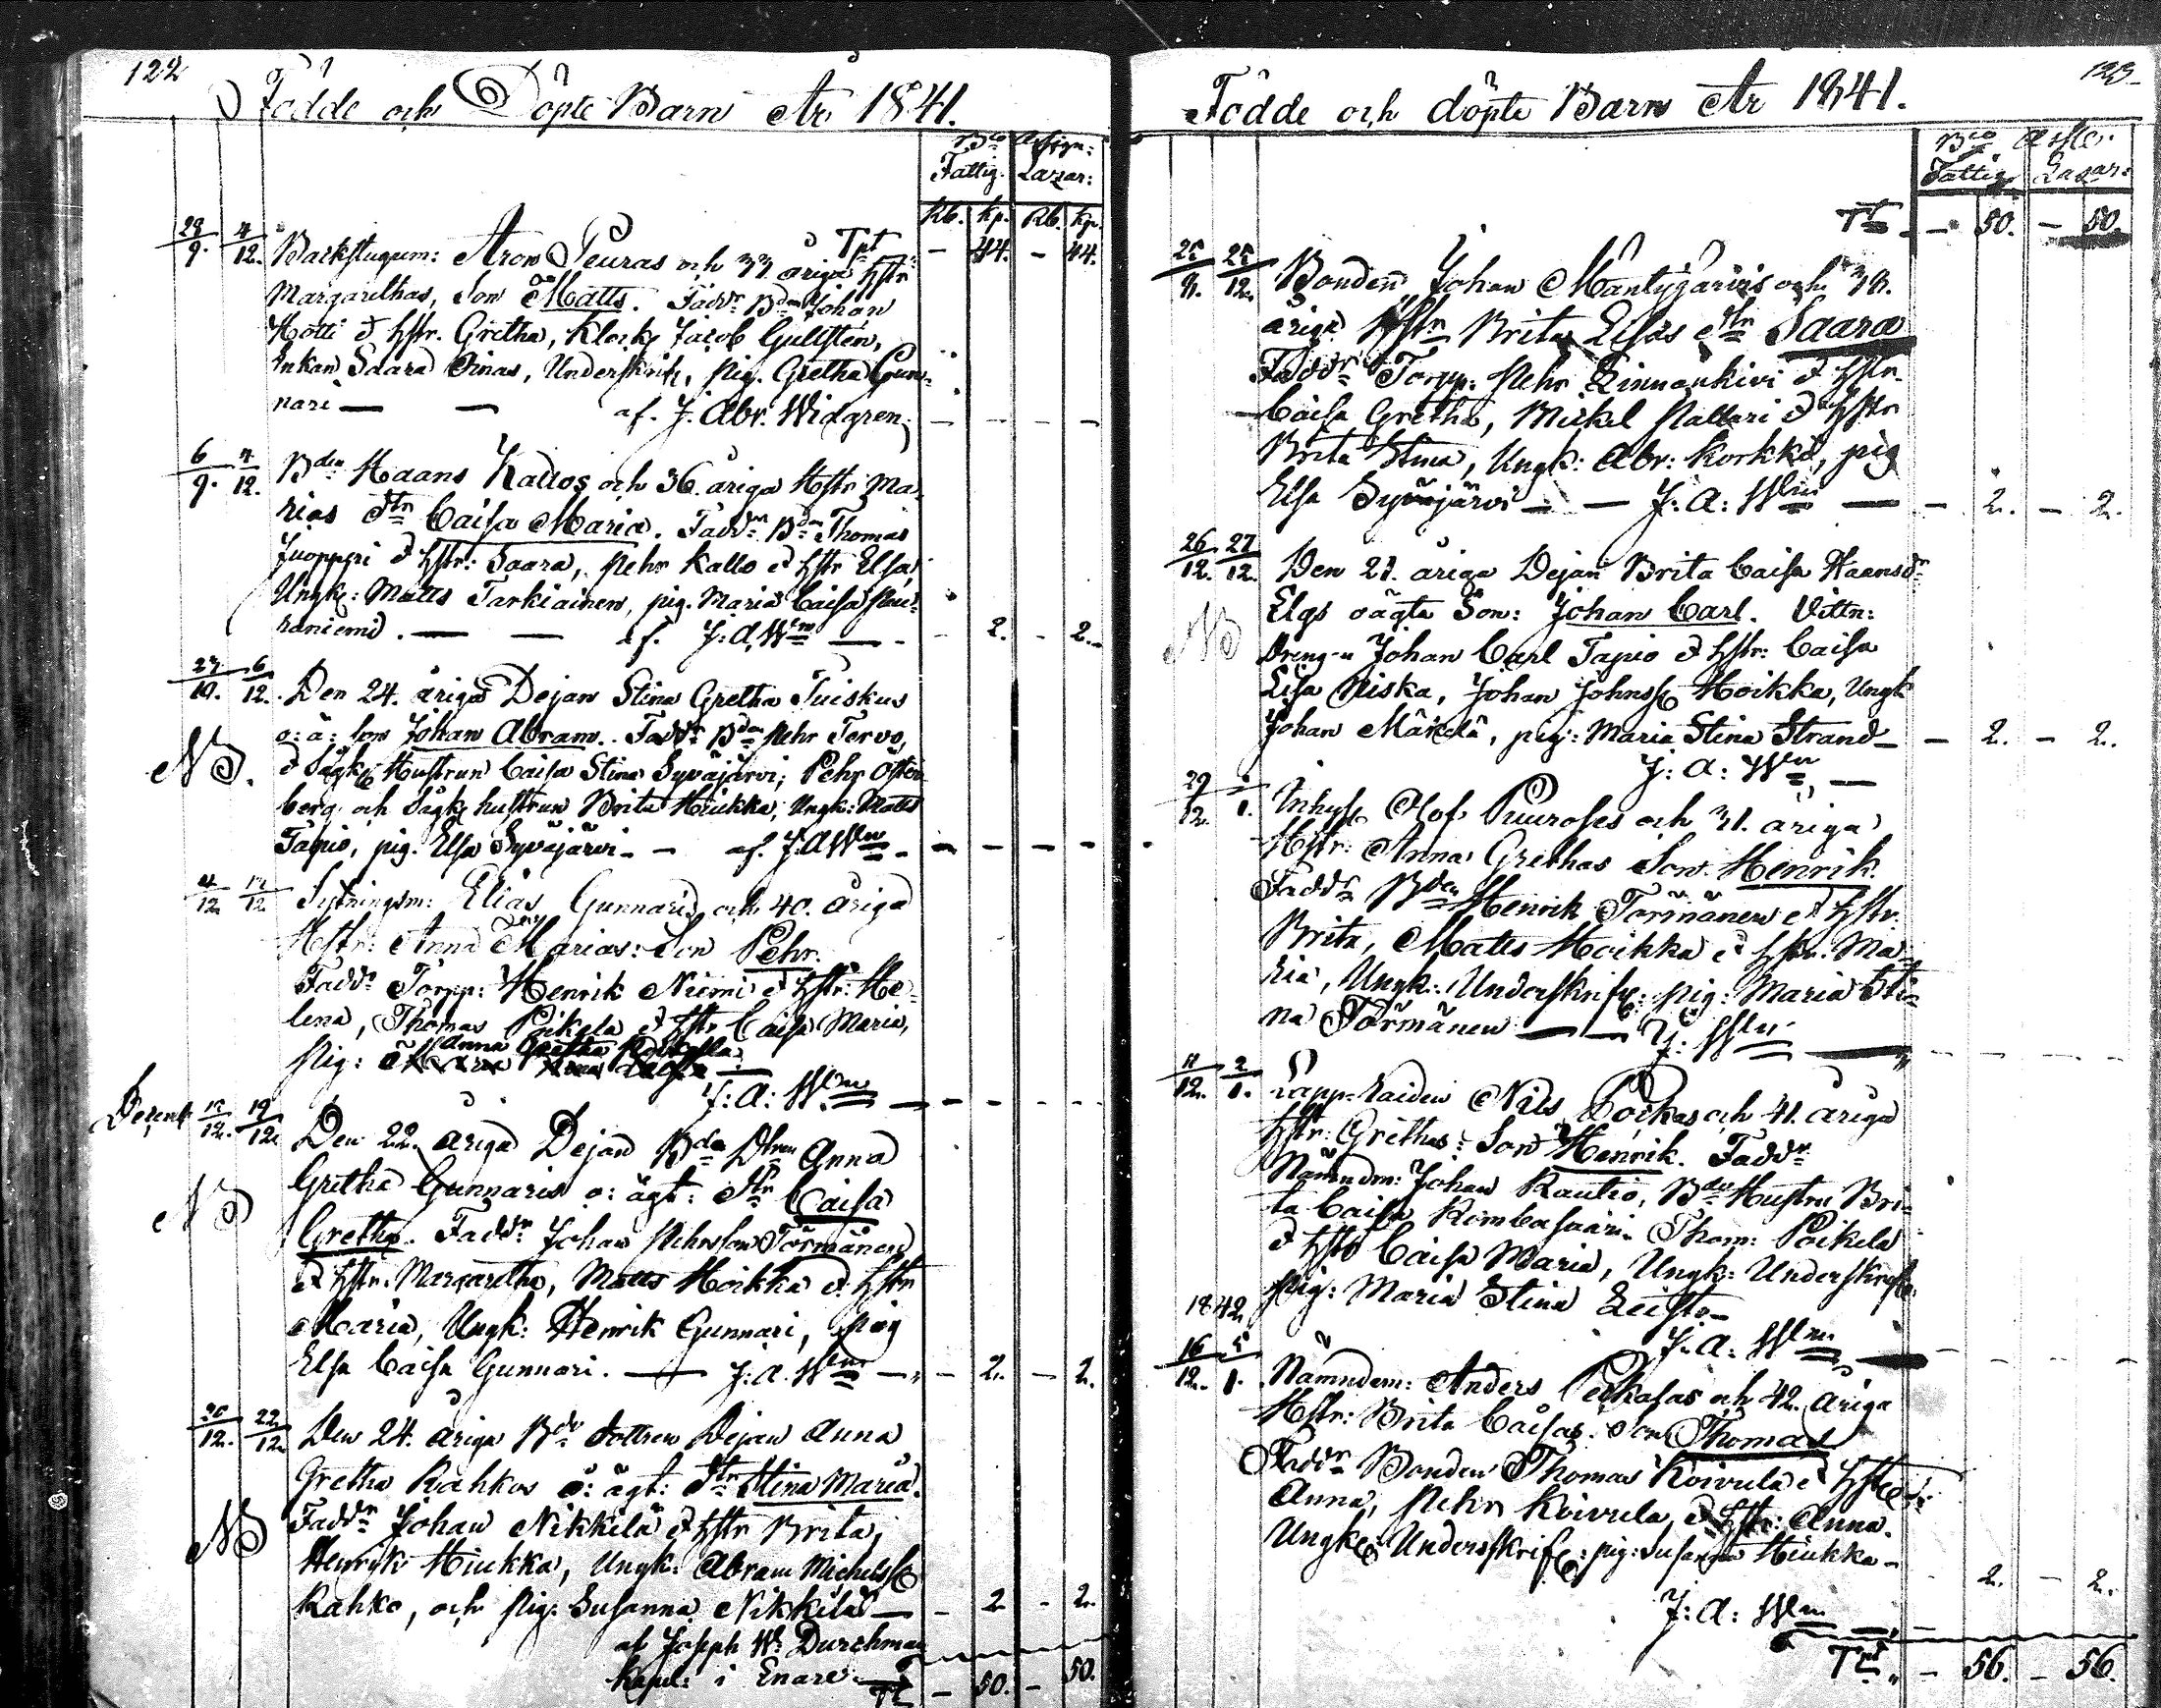 122
Födde och Döpte Barn År 1841.
Bco Assign:
Fattig. Lazar:
Rb. Kp. Rb. Kp.
Tpt — 44. — 44.
28/9. 4/12. Backstugum: Aron Peuras och 33 åriga hstr
Margarethas, Son Matts. Faddr Bdn Johan
Hotti & hstr. Gretha, Klock Jacob Gullsten,
Enkan Saara Oinas, Underskrif, pig. Gretha Gun-
nari — — af. J. Abr. Widgren.
6/9. 4/12. Bdn Haans Kallos och 36. åriga Hstr Ma-
rias dtr Caisa Maria. Faddr Bdn Thomas
Juopperi & hstr: Saara, Pehr Kallo & hstr Elsa,
Ungk: Matts Tarkiainen, pig. Maria Caisa Pau-
raniemi. — — af. J: A. Wm — - 2. - 2.
27/10. 6/12. Den 24. åriga Dejan Stina Gretha Tuiskus
o: ä: son Johan Abram. Faddr Bdn Pehr Tervo,
NB. & Hustrun Caisa Stina Syväjärvi, Pehr Öster-
berg och hustrun Brita Hiukka, Ungk: Matts
Tapio, pig. Elsa Syväjärvi - - af. J. A Wm
4/12 12/12 Sytningsm: Elias Gunnaris och 40. åriga
Hstr: Anna Marias: Son Pehr.
Faddr Torpp: Henrik Niemi & hstr: He-
lena, Thomas Poikela & hstr Caisa Maria,
Anna Gretha Poikella
Pig:
J: A: Wm
Decemb 12/12. 19/12. Den 22. åriga Dejan Bdn Dtren Anna
Gretha Gunnaris o: ägt: Dtr Caisa
NB Gretha. Faddr Johan Pehrsson Törmänen
& hstr. Margaretha, Matts Hoikka & hstr
Maria, Ungk: Henrik Gunnari, pig
Elsa Caisa Gunnari. — J: A. Wm — - 2. - 2.
20/12. 22/12 Den 24. åriga Bde dottren Dejan Anna
Gretha Kahkos o: ägt: Dtr Stina Maria.
NB Faddr Johan Nikkilä & hstr Brita,
Henrik Hiukka, Ungk: Abram Michelss
Kahko, och Pig. Susanna Nikkilä — - 2 - 2.
af Joseph W: Durchman
Kapel: i Enare
Tt — 50. — 50.
123
Födde och döpte Barn År 1841.
Bco Assig:
Fattig Lazar:
Tt — 50. — 50.
12. Bonden Johan Mäntyjärvis och 38.
åriga Hstr Brita Lisas dtr Saara
Faddr Torpp: Pehr Kinnunkivi & hstr
Caisa Gretha, Mickel Pallari & hstr
Brita Stina, Ungk: Abr: Korkko, pig
Elsa Syväjärvi — — J: A: Wm — - 2. - 2.
26/12. 27/12. Den 27. åriga Dejan Brita Caisa Haansdr
Elgs oägta Son: Johan Carl. Vittn:
NB Dreng-n Johan Carl Tapio & hstr: Caisa
Lisa Niska, Johan Johnss Hoikka, Ungk
Johan Mäkelä, pig: Maria Stina Strand — - 2. - 2.
J: A: Wm —
29/12. 1. Inhys. Olof Puuroses och 31. åriga
Hstr: Anna Grethas Son Henrik.
Faddr Bden Henrik Törmänen & hstr.
Brita, Matts Hoikka & hstr. Ma-
ria, Ungk: Underskrif: pig: Maria Sti-
na Törmänen — — J: Wm
11/12. 2/1. Lapp-Raiden Nils Corkas och 41. åriga
hstr: Grethas: Son Henrik. Faddr
Nämndm: Johan Rautio, Bde Hustru Bri-
ta Caisa Kombasaari. Thom: Poikela
& hstr Caisa Maria, Ungk: Underskrif:
Pig: Maria Stina Leisto —
J: A: Wm
1842
16/12. 5/1. Nämndem: Anders Peckasas och 42. åriga
Hstr: Brita Caisas. Son Thomas
Faddr Bonden Thomas Koivula & hstr
Anna, Pehr Koivula & hstr: Anna.
Ungk: Underskrif: pig: Susanna Hiukka - - 2. - 2.
J: A: Wm
Tpt — 56. — 56.